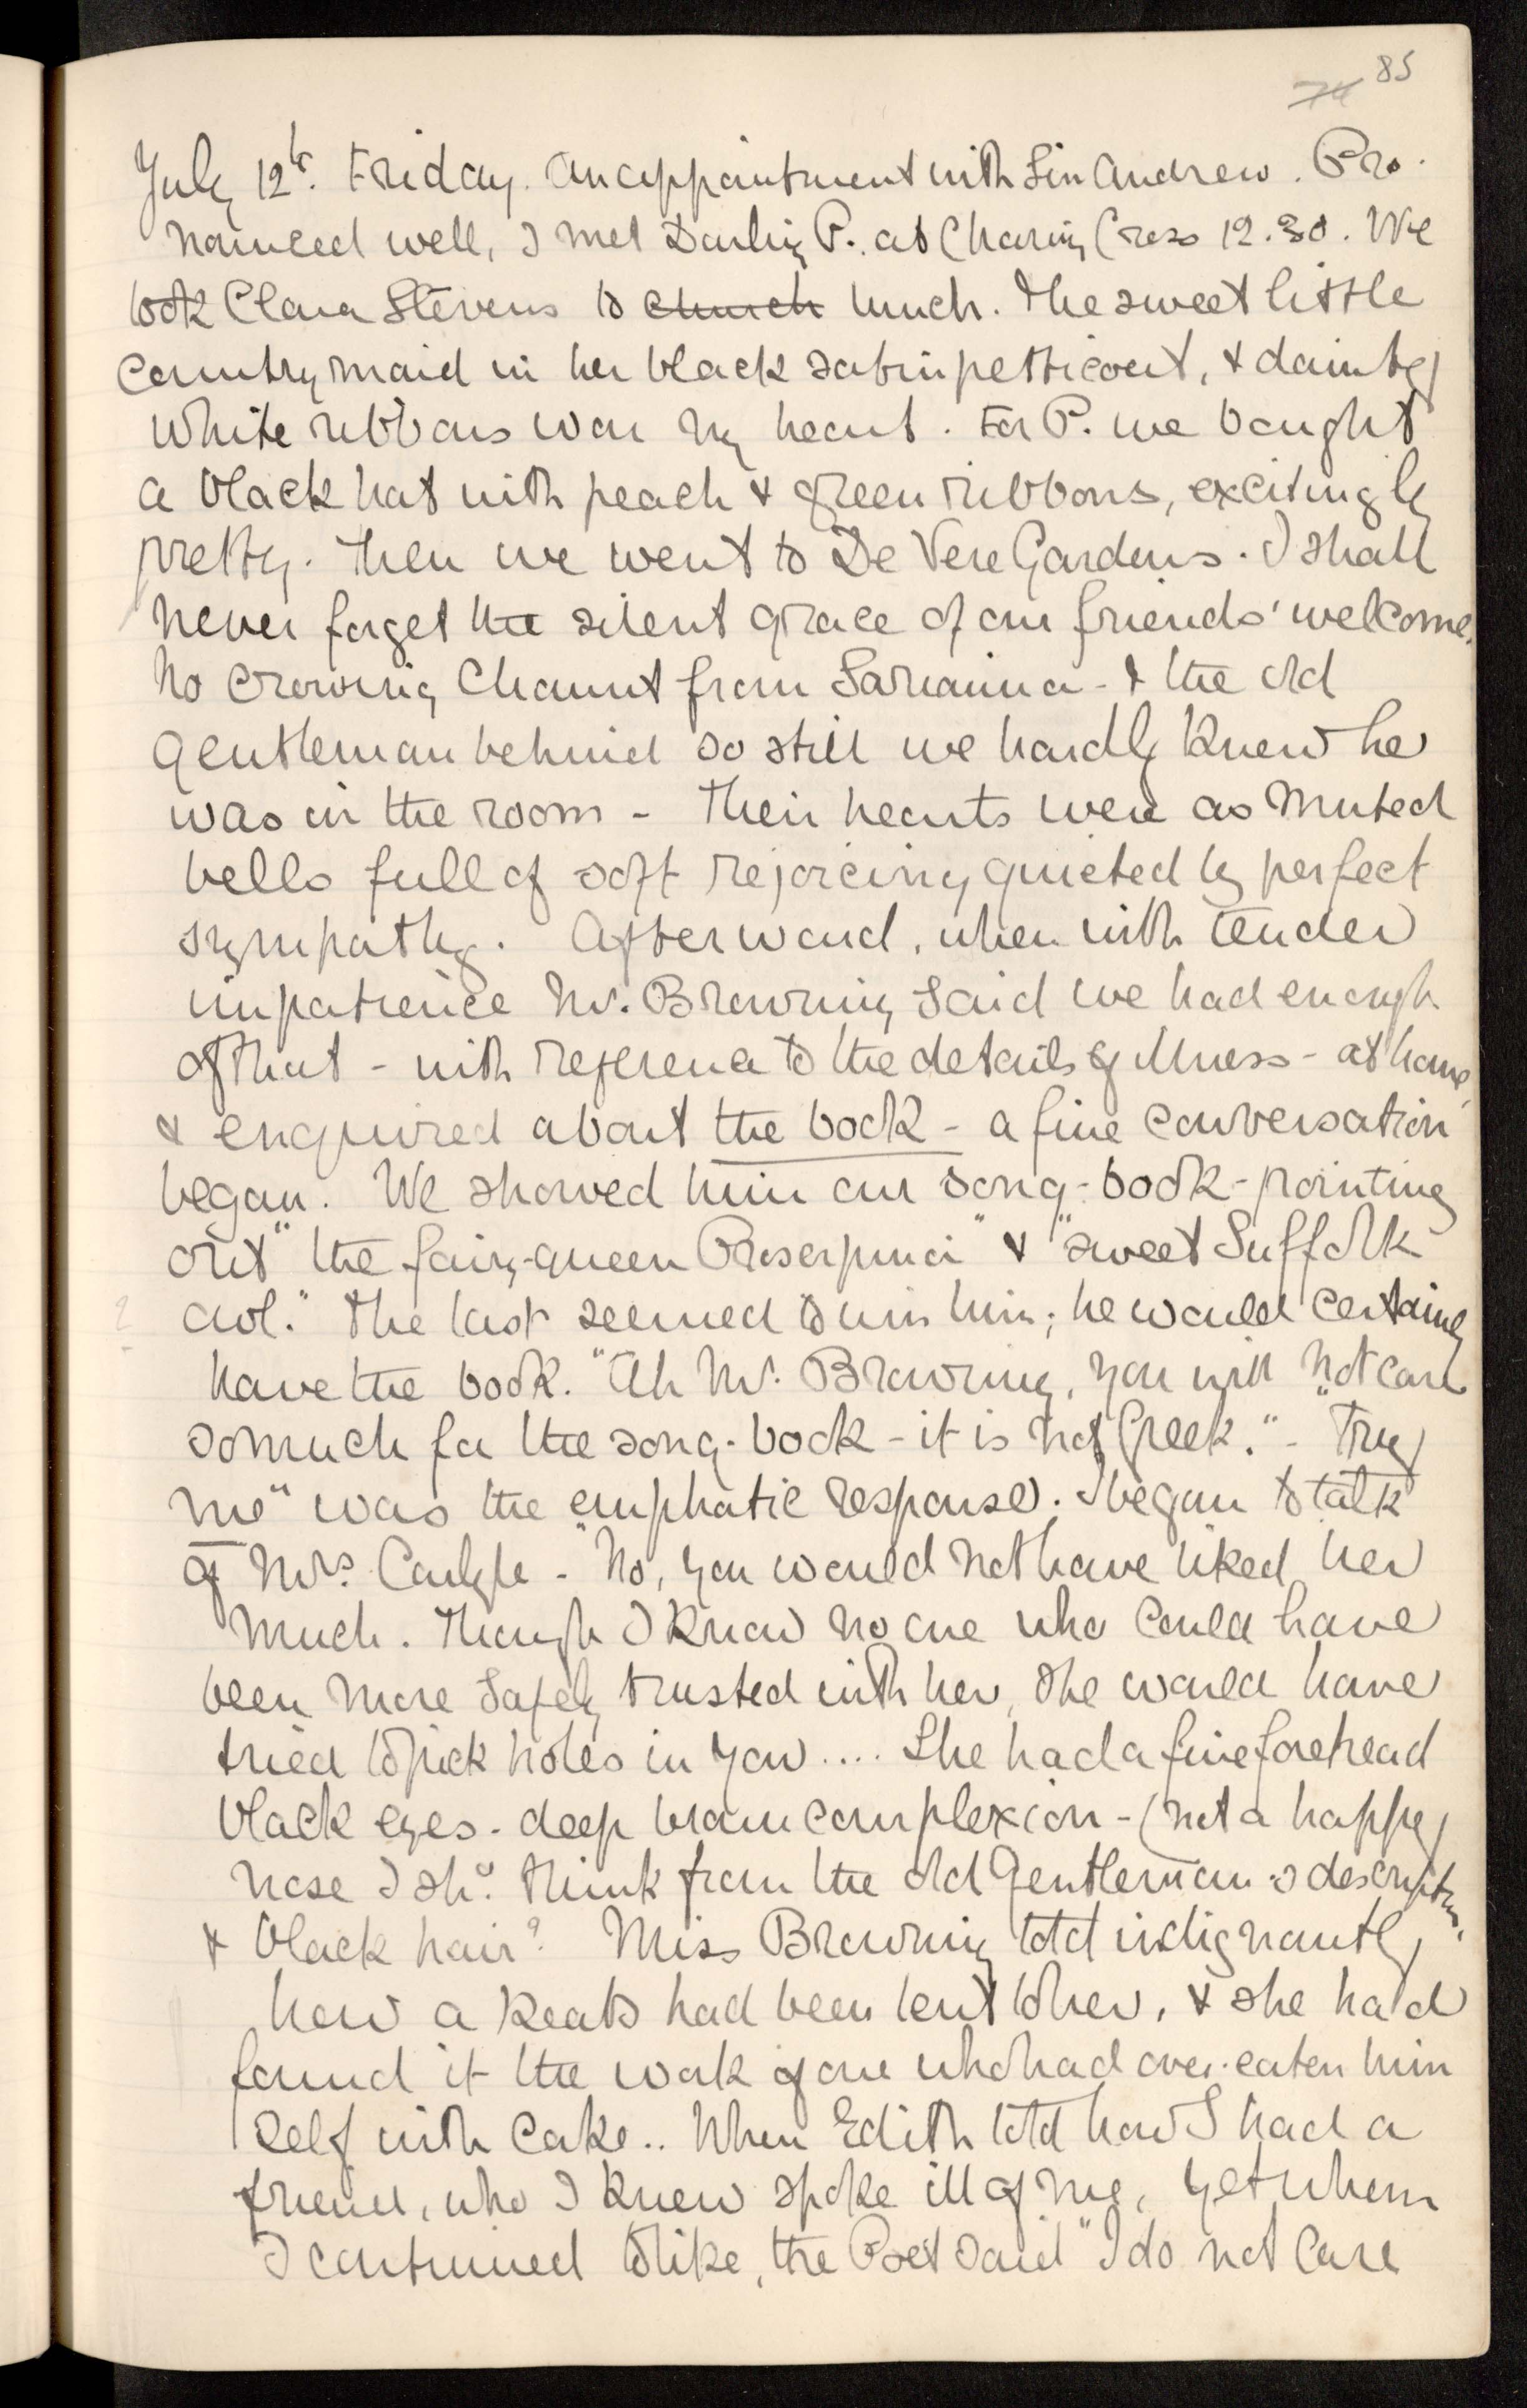 74 85
July 12th. Friday. An appointment with Sir Andrew. Pro-
nounced well, I met Darling P. at Charing Cross 12.30. We
took Clara Stevens to church lunch. The sweet little
country maid in her black satin petticoat, & dainty
white ribbons won my heart. For P. we bought
a black hat with peach & green ribbons, excitingly
pretty. Then we went to De Vere Gardens. I shall
never forget the silent grace of our friends' welcome.
No crowing Chaunt from Sarianna - & the old
gentleman behind so still we hardly knew he
was in the room - Their hearts were as muted
bells full of soft rejoicing quieted by perfect
sympathy. Afterward, when with tender
impatience Mr. Browning said we had enough
of that - with reference to the details of illness - at home,
& enquired about the book - a fine conversation
began. We showed him our song-book - pointing
out "the fairy-queen Proserpina" & "sweet Suffolk
owl." The last seemed to win him; he would certainly
have the book. "Ah Mr. Browning, you will not care
so much for the song-book - it is not Greek." - "Try
me" was the emphatic response. I began to talk
of Mrs. Carlyle - "No, you would not have liked her
much. Though I know no one who could have
been more safely trusted with her, she would have
tried to pick holes in you .... She had a fine forehead
black eyes - deep brown complexion - (not a happy
nose I shd. think from the old gentleman's description.
& black hair? Miss Browning told indignantly
how a Keats had been lent to her, & she had
found it the work of one who had over-eaten him
self with cake .. When Edith told how I had a
friend, who I knew spoke ill of me, yet whom
I continued to like, the Poet said "I do not care